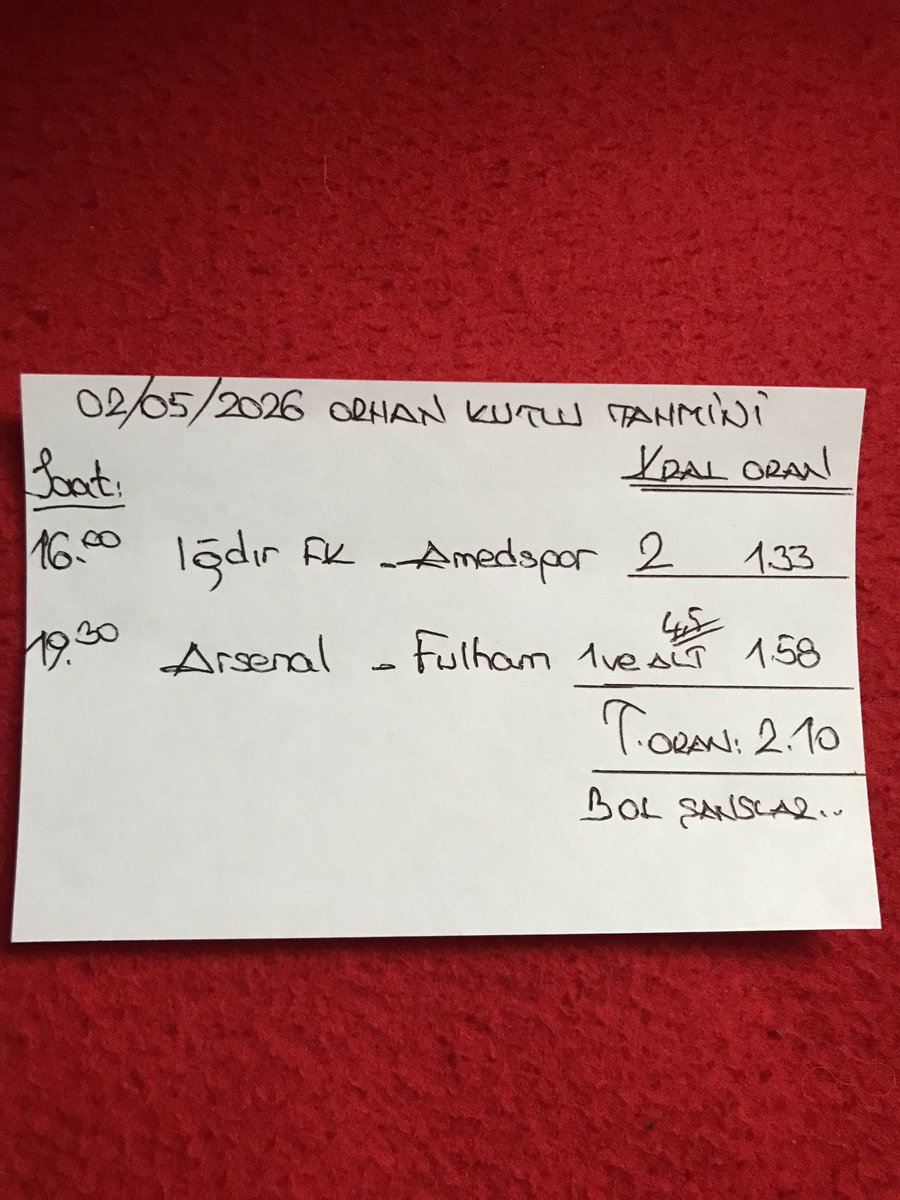 02/05/2026 ORHAN KUTLU TAHMİNİ
Saat: KRAL ORAN
16.00 Iğdır FK - Amedspor 2 1.33
19.30 Arsenal - Fulham 1 ve ALT 4,5 1.58
T. ORAN: 2.10
BOL ŞANSLAR..